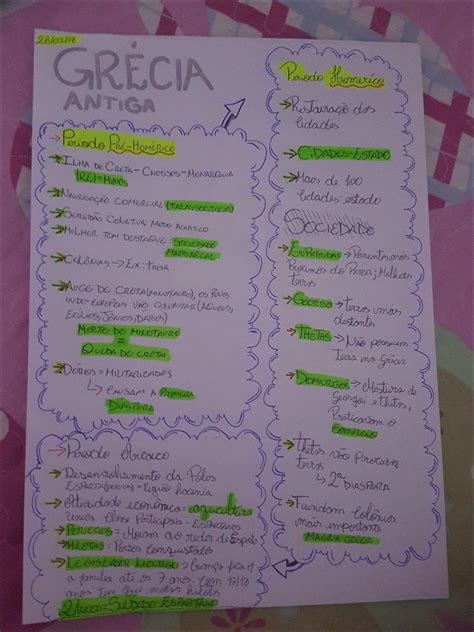 28/02/18
GRÉCIA
ANTIGA
→ Período Pré-Homérico
→ Ilha de Creta - Cnossos - Monarquia
(REI = MINOS
→ Navegação comercial (TALASSOCRACIA)
→ Servidão coletiva modo asiático
→ Mulher tem destaque: SOCIEDADE
MATRIARCAL
→ Colônias → Ex: Troia
→ Auge de Creta (Minotauro), os povos
indo-europeus vão colonizar (Aqueus,
Eólios, Jônios, Dórios)
MORTE DO MINOTAURO
=
QUEDA DE CRETA
→ Dórios = Militarizados
↳ Causam a PRIMEIRA
DIÁSPORA
→ Período Arcaico
→ Desenvolvimento da Polis
Esparta
→ Atividade econômica:
→ PERIECOS = Moram ao redor de Esparta
→ HILOTAS = Povos conquistados
→ LEGISLADOR LICURGO → Criança fica c/
a família até os 7 anos. Com 17/18
anos tem que matar hilotas
21 anos = SOLDADO ESPARTANO
Período Homérico
→ Restauração das
Cidades
→ CIDADES-ESTADO
→ Mais de 100
cidades estado
SOCIEDADE
→ EUPÁTRIDAS → Parentes mais
próximos do Pater; Melhores
terras
→ GEORGOI → terras mais
distantes
→ THETAS → Não possuem
terras na Grécia
→ DEMIURGOS → Mistura de
Georgoi e thetas,
Praticavam o
COMÉRCIO
→ Thetas vão procurar
terras
↳ 2ª
DIÁSPORA
→ Fundam colônias
mais importantes
MAGNA GRÉCIA